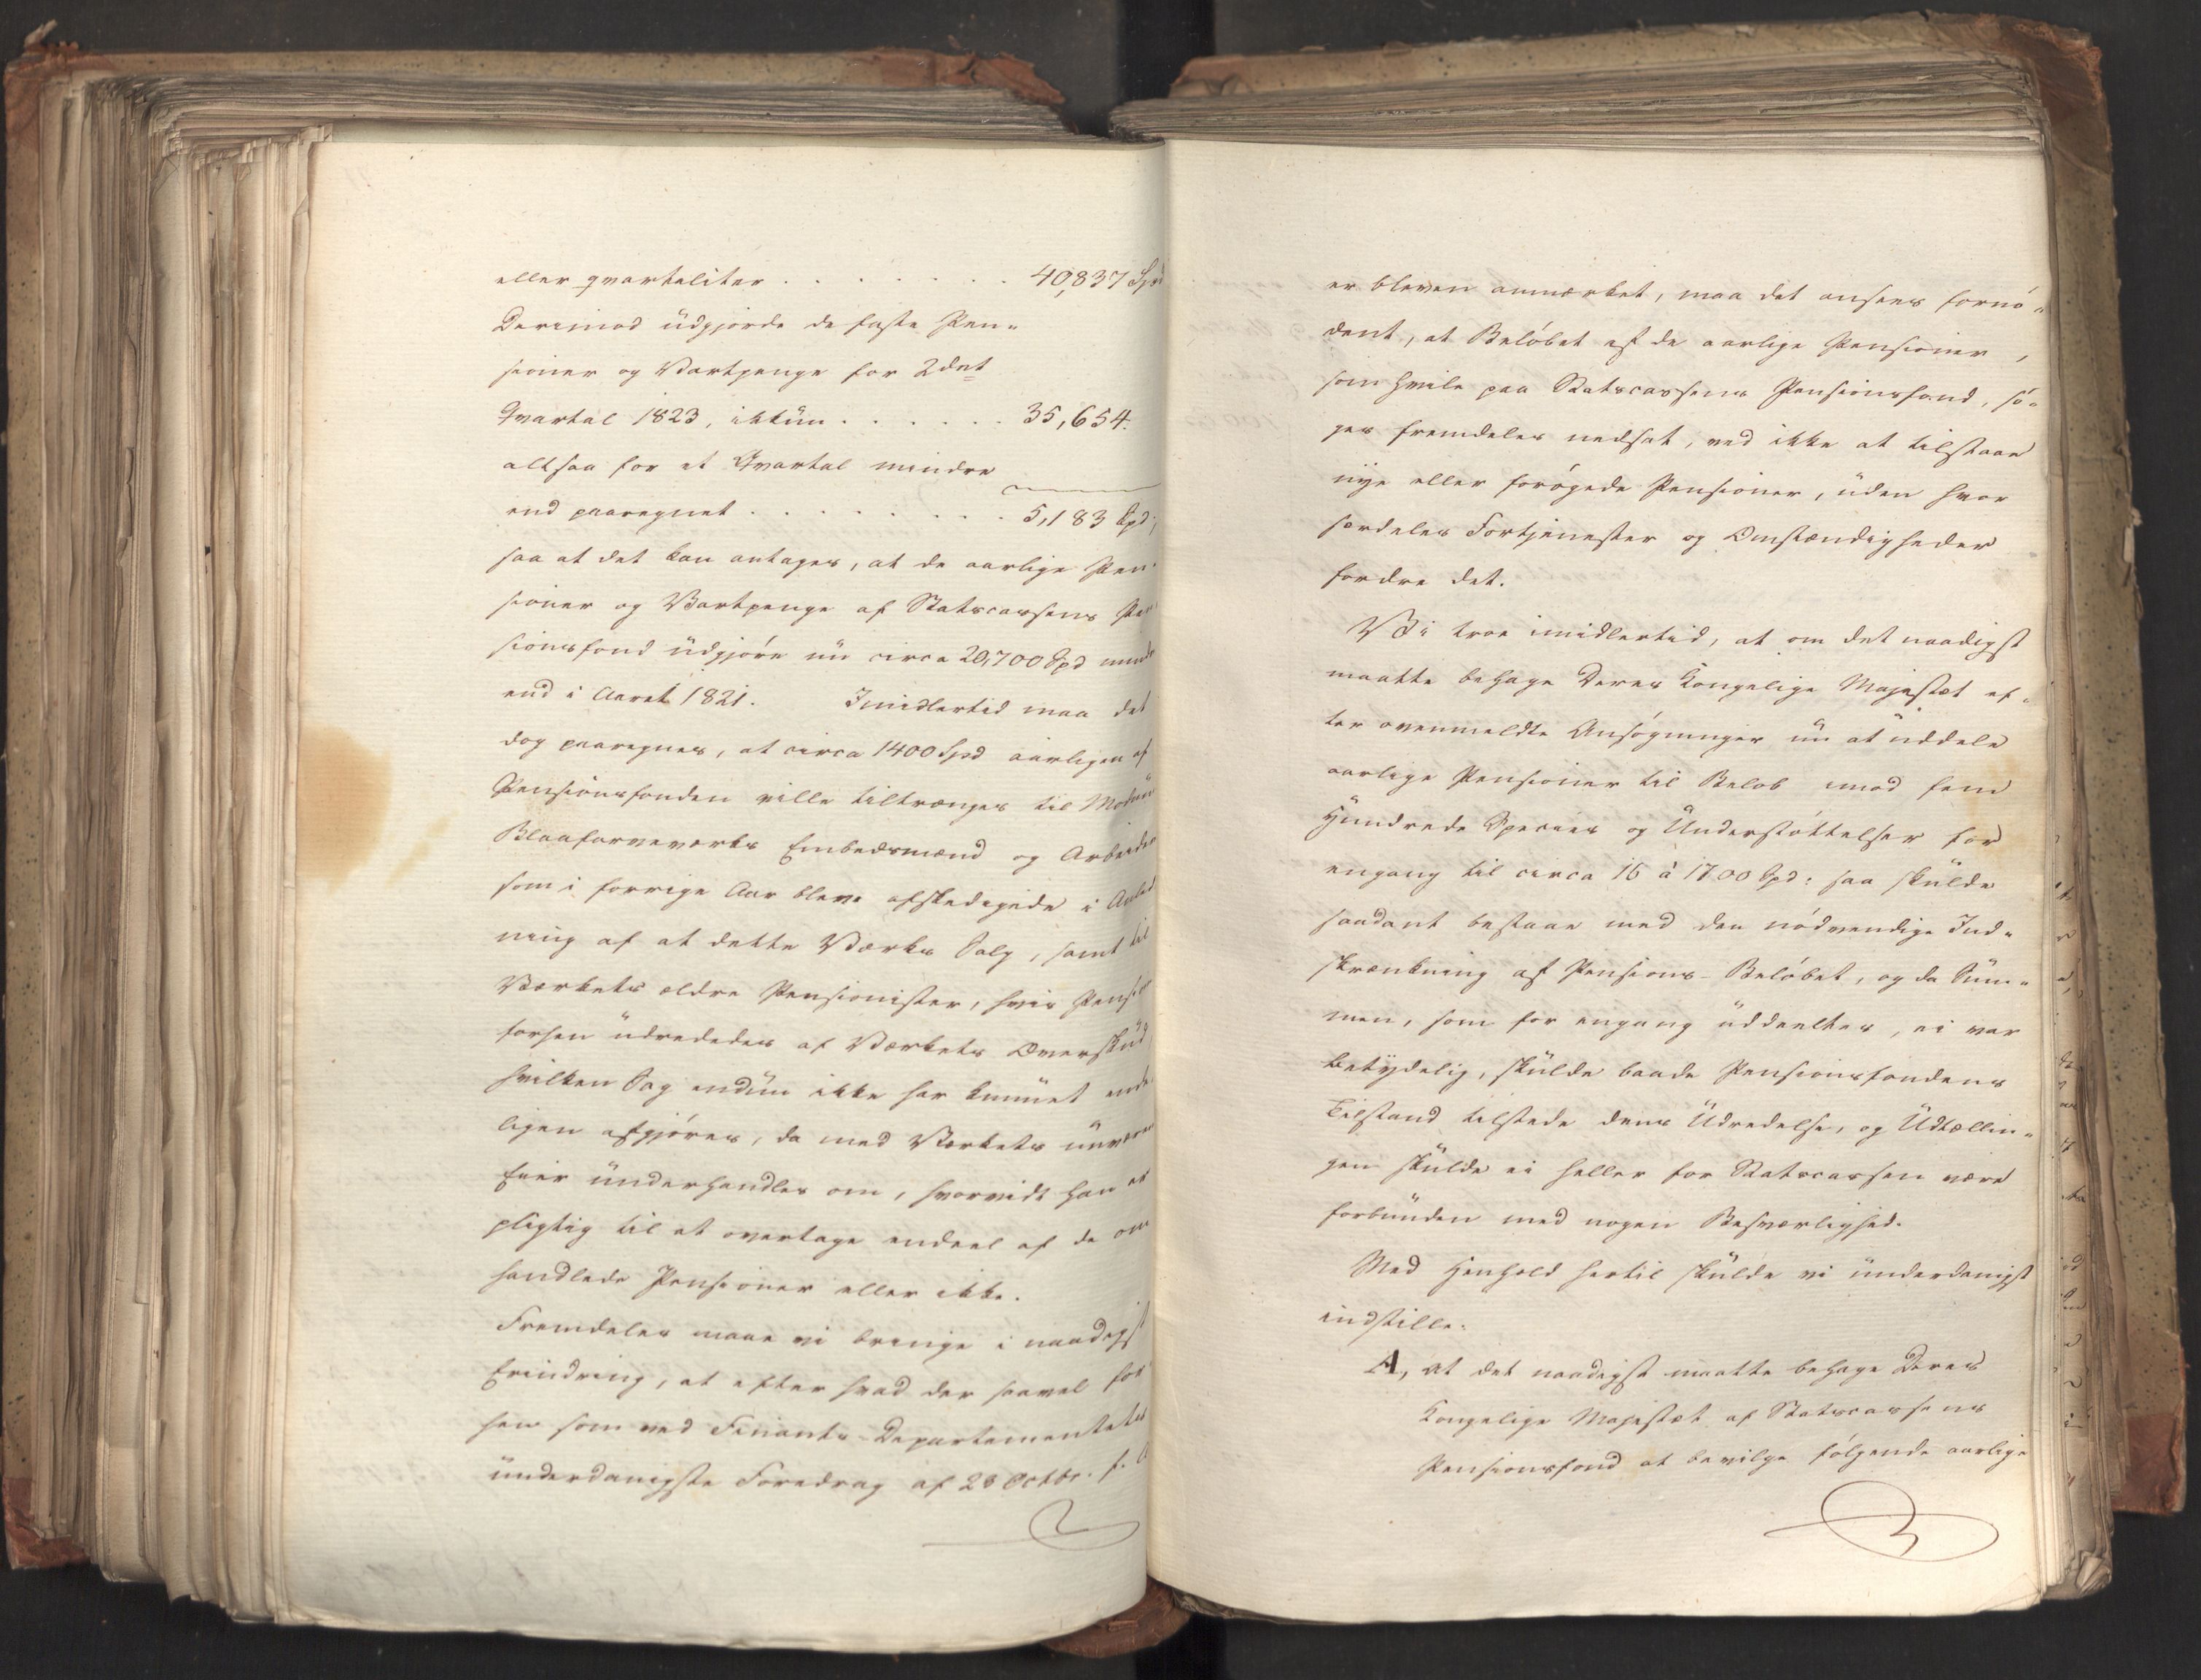 eller qvartaliter . . . . . . . 40,837 Spd
Derimod udgjorde de faste Pen-
sioner og Vartpenge for 2det
Qvartal 1823, ikkun . . . . . . 35,654.
altsaa for et Qvartal mindre
end paaregnet . . . . . . . . . 5,183 Spd;
saa at det kan antages, at de aarlige Pen-
sioner og Vartpenge af Statscassens Pen-
sionsfond udgjøre nu circa 20,700 Spd mindre
end i Aaret 1821. Imidlertid maa det
dog paaregnes, at circa 1400 Spd aarligen af
Pensionsfonden ville tiltrænges til Modums
Blaafarveværks Embedsmænd og Arbeidere
som i forrige Aar bleve afskedigede i Anled
ning af at dette Værks Salg, samt til
Værkets ældre Pensionister, hvis Pension
forhen udrededes af Værkets Overskud,
hvilken Sag endnu ikke har kunnet ende-
ligen afgjøres, da med Værkets nuværende
Eier underhandles om, hvorvidt han er
pligtig til at overtage endeel af de om
handlede Pensioner eller ikke.
Fremdeles maae vi bringe i naadigst
Erindring, at efter hvad der saavel for
hen som ved Finants-Departementets
underdanigste Foredrag af 28 Octbr. f. A.
er bleven anmærket, maa det ansees fornø-
dent, at Beløbet af de aarlige Pensioner,
som hvile paa Statscassens Pensionsfond, sø-
ges fremdeles nedsat, ved ikke at tilstaae
nye eller forøgede Pensioner, uden hvor
særdeles Fortjenester og Omstændigheder
fordre det.
Vi troe imidlertid, at om det naadigst
maatte behage Deres Kongelige Majestæt ef-
ter ovenmeldte Ansøgninger nu at uddele
aarlige Pensioner til Beløb imod fem
Hundrede Species og Understøttelser for
engang til circa 16 à 1700 Spd: saa skulde
saadant bestaae med den nødvendige Ind-
skrænkning af Pensions-Beløbet, og da Sum-
men, som for engang uddeeltes, ei var
betydelig, skulde baade Pensionsfondens
Tilstand tilstede dens Udredelse, og Udtællin-
gen skulde ei heller for Statscassen være
forbunden med nogen Besværlighed.
Med Henhold hertil skulde vi underdanigst
indstille:
A, at det naadigst maatte behage Deres
Kongelige Majestæt af Statscassens
Pensionsfond at bevilge følgende aarlige